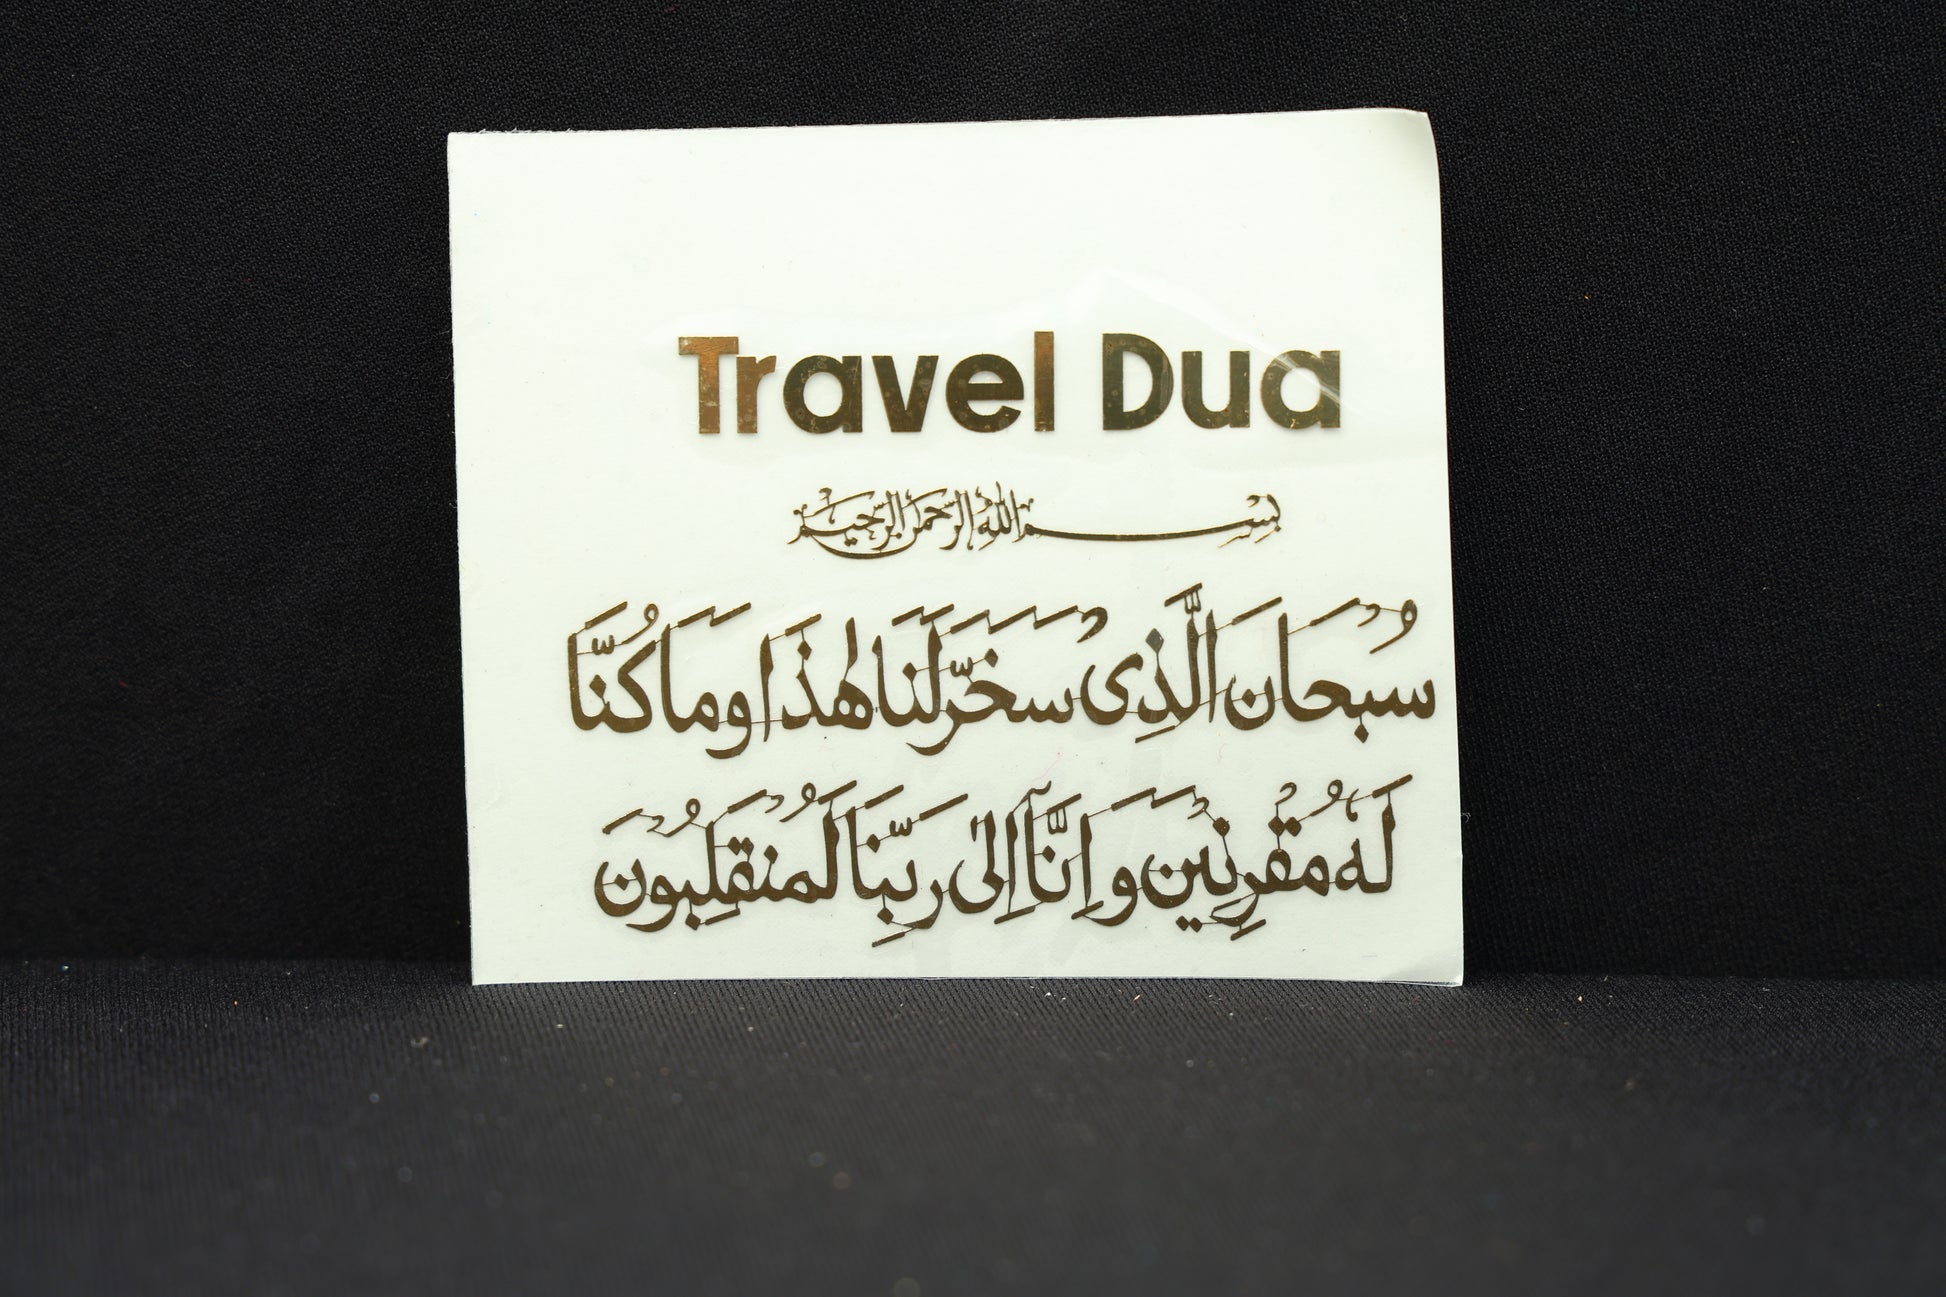 Travel Dua
بِسْمِ اللهِ الرَّحْمٰنِ الرَّحِيْمِ
سُبْحَانَ الَّذِیْ سَخَّرَ لَنَا هٰذَا وَمَا كُنَّا
لَهٗ مُقْرِنِيْنَ وَاِنَّآ اِلٰى رَبِّنَا لَمُنْقَلِبُوْنَ